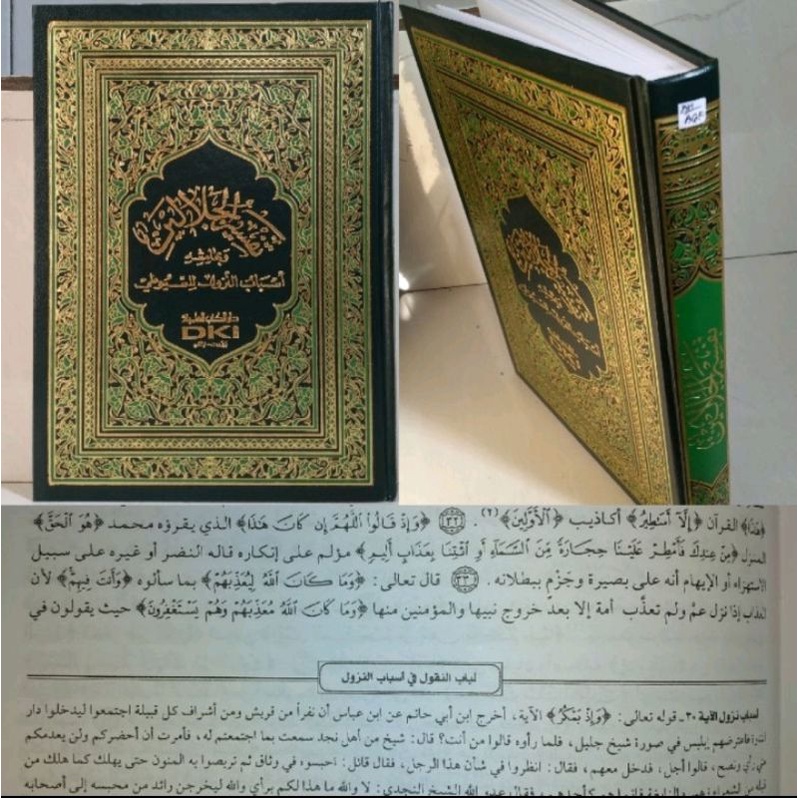 تفسير الجلالين
وبهامشه
أسباب النزول للسيوطي
دار الكتب العلمية
DKi
تفسير الجلالين
﴿هَٰذَا﴾ القرآن ﴿إِلَّا أَسَٰطِيرُ﴾ أكاذيب ﴿ٱلْأَوَّلِينَ﴾(٢). ﴿٣٢﴾ ﴿وَإِذْ قَالُوا۟ ٱللَّهُمَّ إِن كَانَ هَٰذَا﴾ الذي يقرؤه محمد ﴿هُوَ ٱلْحَقَّ﴾
المنزل ﴿مِنْ عِندِكَ فَأَمْطِرْ عَلَيْنَا حِجَارَةً مِّنَ ٱلسَّمَآءِ أَوِ ٱئْتِنَا بِعَذَابٍ أَلِيمٍ﴾ مؤلم على إنكاره قاله النضر أو غيره على سبيل
الاستهزاء أو الإيهام أنه على بصيرة وجَزْمٍ ببطلانه. ﴿٣٣﴾ قال تعالى: ﴿وَمَا كَانَ ٱللَّهُ لِيُعَذِّبَهُمْ﴾ بما سألوه ﴿وَأَنتَ فِيهِمْ﴾ لأن
العذاب إذا نزل عمَّ ولم تعذَّب أمة إلا بعد خروج نبيها والمؤمنين منها ﴿وَمَا كَانَ ٱللَّهُ مُعَذِّبَهُمْ وَهُمْ يَسْتَغْفِرُونَ﴾ حيث يقولون في
لباب النقول في أسباب النزول
أسباب نزول الآية ٣٠ ـ قوله تعالى: ﴿وَإِذْ يَمْكُرُ﴾ الآية، أخرج ابن أبي حاتم عن ابن عباس أن نفراً من قريش ومن أشراف كل قبيلة اجتمعوا ليدخلوا دار
الندوة فاعترضهم إبليس في صورة شيخ جليل، فلما رأوه قالوا من أنت؟ قال: شيخ من أهل نجد سمعت بما اجتمعتم له، فأردت أن أحضركم ولن يعدمكم
مني رأي ونصح، قالوا أجل، فدخل معهم، فقال: انظروا في شأن هذا الرجل، فقال قائل: احبسوه في وثاق ثم تربصوا به المنون حتى يهلك كما هلك من
قبله من الشعراء زهير والنابغة فإنما هو كأحدهم، فقال عدو الله الشيخ النجدي: لا والله ما هذا لكم برأي والله ليخرجن رائد من محبسه إلى أصحابه